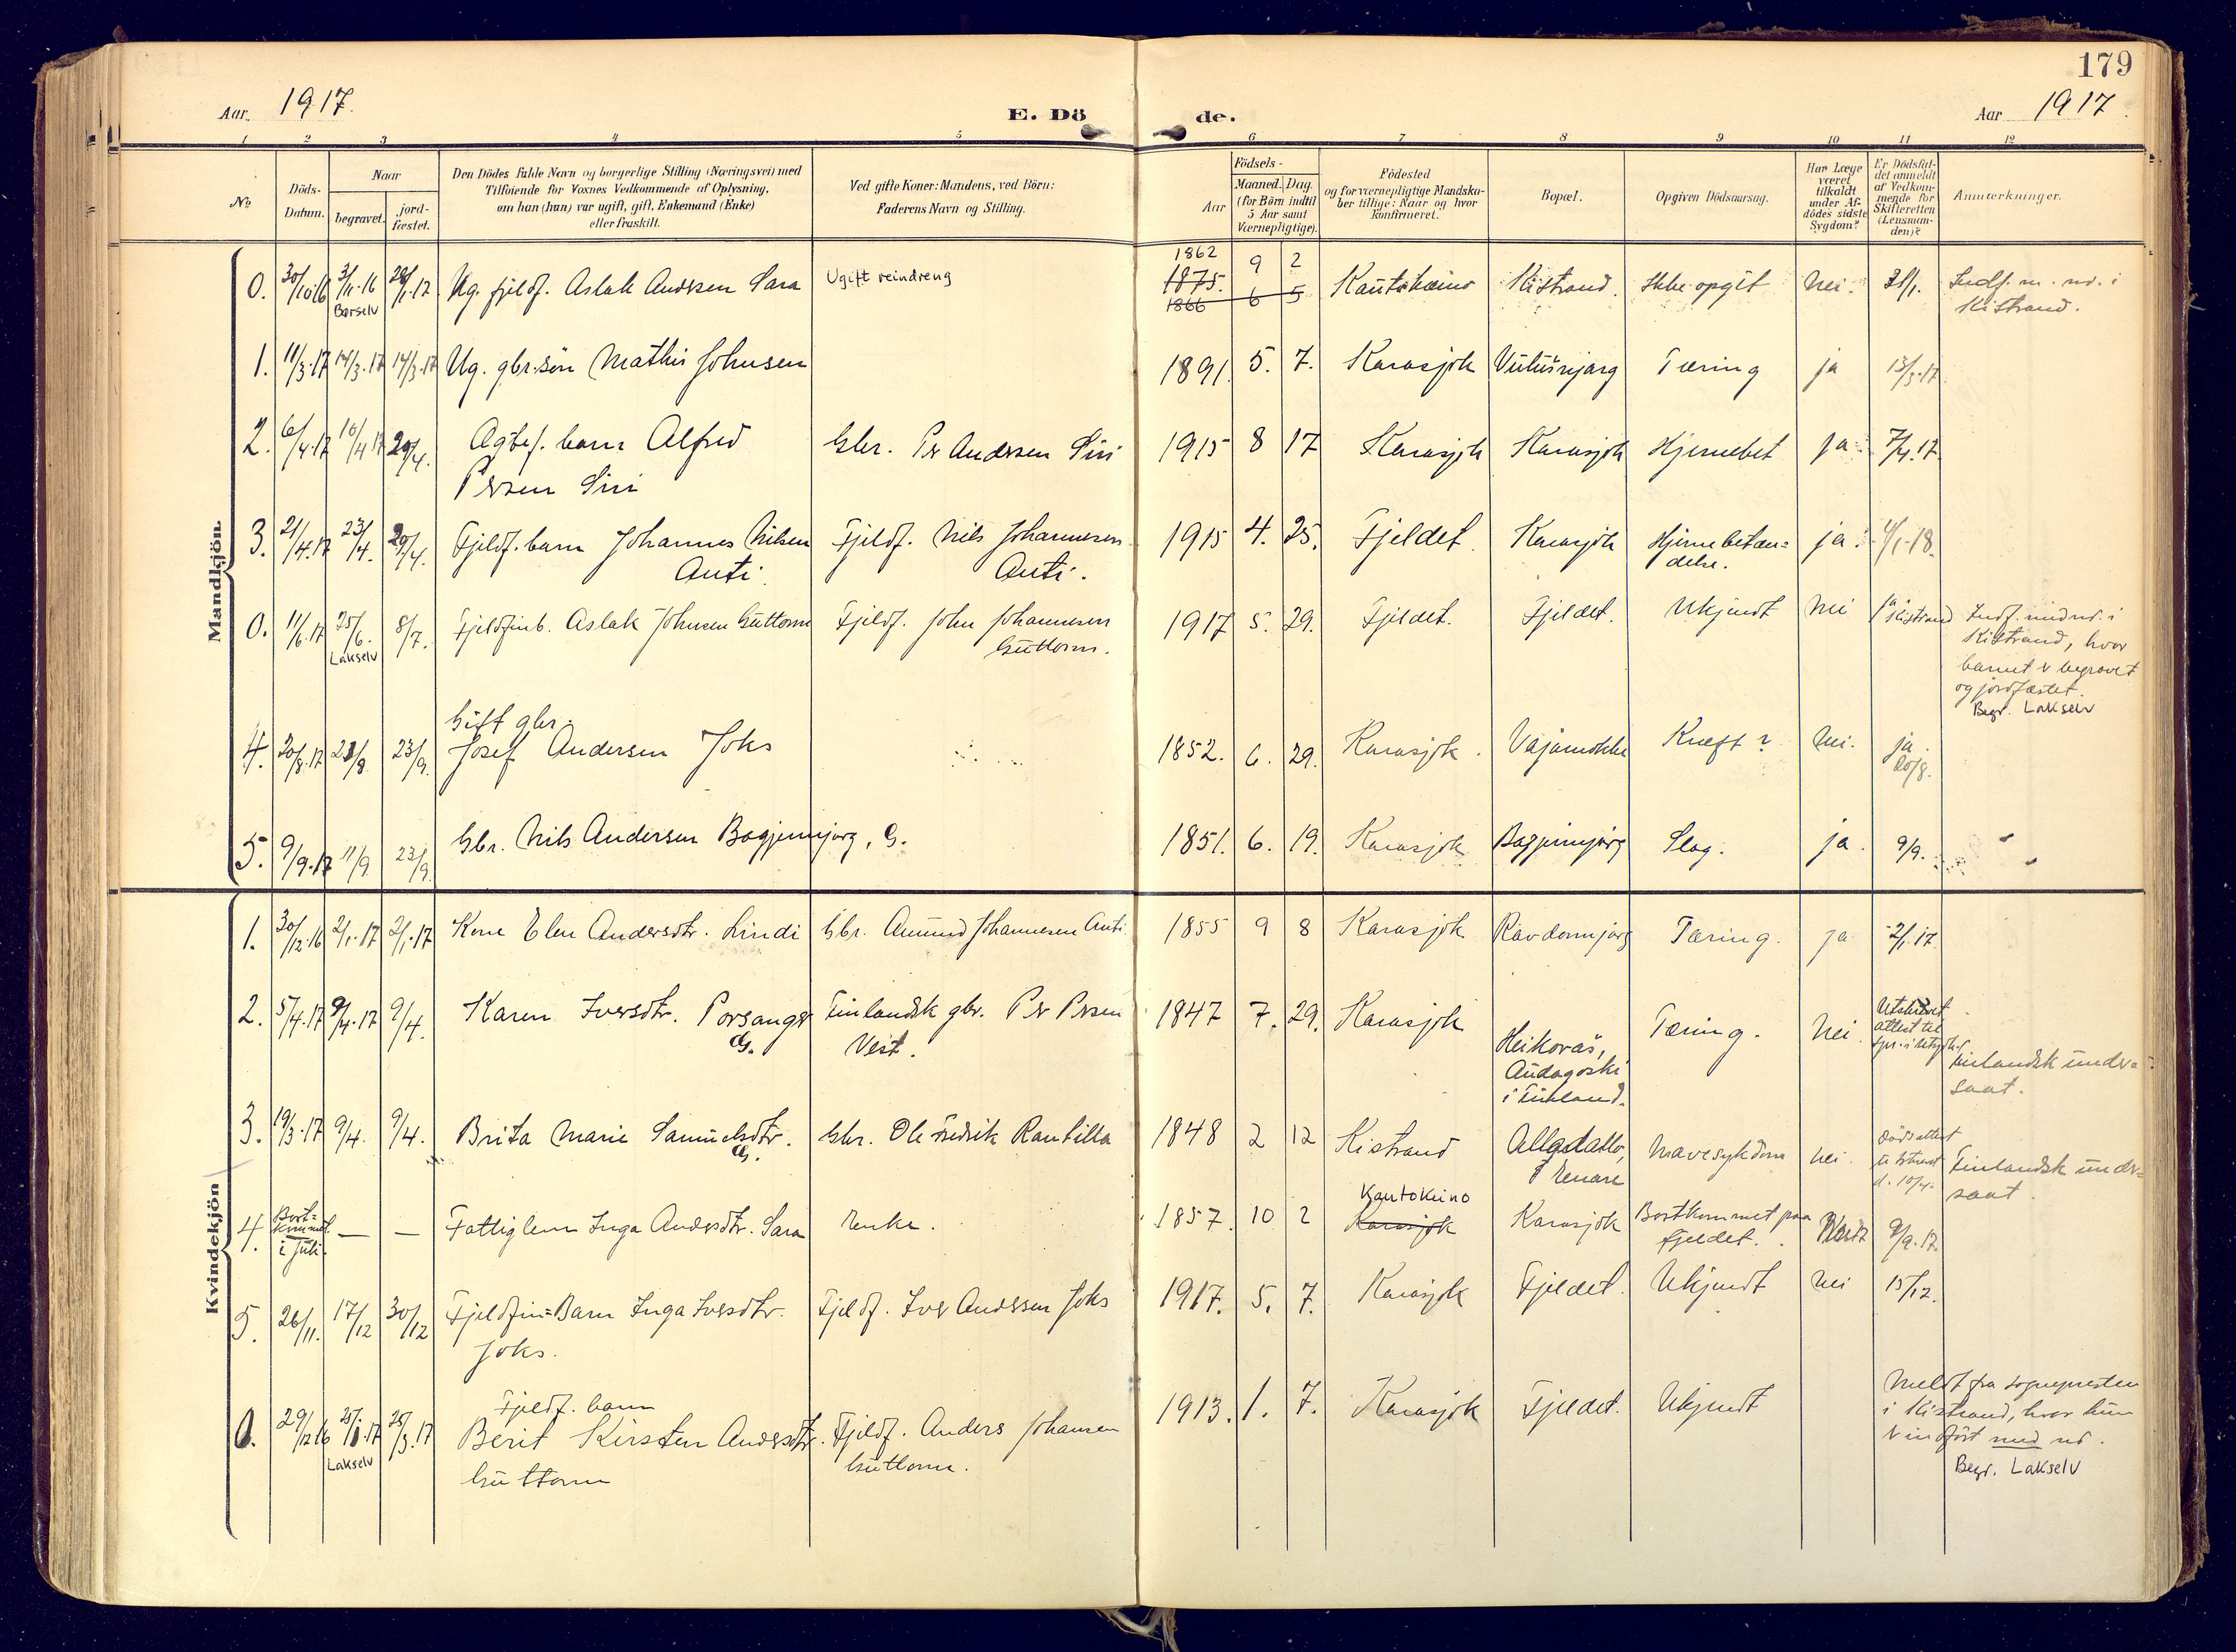 179
Aar. 1917.
E. Dö de.
Aar 1917.
1 2 3 4 5 6 7 8 9 10 11 12
No
Döds-
Datum.
Naar
begravet.
jord-
fæstet.
Den Dödes fulde Navn og borgerlige Stilling (Næringsvei) med
Tilföiende for Voxnes Vedkommende af Oplysning,
om han (hun) var ugift, gift, Enkemand (Enke)
eller fraskilt.
Ved gifte Koner: Mandens, ved Börn:
Faderens Navn og Stilling.
Födsels-
Aar
Maaned. Dag.
(for Börn indtil
5 Aar samt
Værnepligtige).
Födested
og for værnepligtige Mandska-
ber tillige: Naar og hvor
konfirmeret.
Bopæl.
Opgiven Dödsaarsag.
Har Læge
været
tilkaldt
under Af-
dödes sidste
Sygdom?
Er Dödsfal-
det anmeldt
af Vedkom-
mende for
Skifteretten
(Lensman-
den)?
Anmærkninger.
Mandkjön.
1862 9 2
0. 30/10.16 3/11.16 28/1.17 Ug. fjeldf. Aslak Andersen Sara Ugift reindreng 1875. Kautokeino Kistrand. Ikke opgit Nei. 31/1. Indf. m. nr. i
Børselv 1866 6 5 Kistrand.
1. 11/3.17 14/3.17 14/3.17 Ug. gbr.søn Mathis Johnsen 1891. 5. 7. Karasjok Tæring ja 13/3.17
2. 6/4.17 10/4.17 29/4. barn Alfred Gbr. Per Andersen Siri 1915 8 17 Karasjok Karasjok Hjernebet ja. 7/4.17.
Persen Siri
3. 21/4.17 23/4. 29/4. Fjeldf. barn Johannes Nilsen Fjeldf. Nils Johannesen 1915 4. 25. Fjeldet. Karasjok Hjernebetæn= ja.
Anti. Anti. delse.
0. 11/6.17 25/6. 8/7. Fjeldfinb. Aslak Johnsen Guttorm Fjeldf. John Johannesen 1917 5. 29. Fjeldet. Fjeldet. Ukjendt Nei ja Kistrand Indf. uid nr. i
Lakselv Guttorm. Kistrand, hvor
barnet er begravet
og jordfæstet.
Begr. Lakselv
Gift gbr.
4. 20/8.17 23/9. Josef Andersen Joks 1852. 6. 29. Karasjok. Vajamokke Kræft? Nei. ja.
20/8.
5. 9/9.17 11/9 23/9. Gbr. Nils Andersen Bagjinnjarg, G. 1851. 6. 19. Karasjok Bagjinnjarg Slag. ja. 9/9.
Kvindekjön
1. 30/12.16 2/1.17 2/1.17 Kone Elen Andersdtr. Lindi Gbr. Amund Johannesen Anti 1855 9 8 Karasjok Ravdonnjarg Tæring. ja 2/1.17
2. 5/4.17 9/4.17 9/4. Karen Iversdtr. Porsanger Finlandsk gbr. Per Persen 1847 7. 29. Karasjok Tæring. Nei. Utskrevet
G. Veit. Heikovas, attest til
i Finland. Finlandsk under=
saat.
3. 19/3.17 9/4. 9/4. Brita Marie Samuelsdtr. Gbr. Ole Fredrik Rantilla 1848 2 12 Kistrand Mavesykdom nei. Dødsattest
G. Enare d. 10/4. Finlandsk under=
saat.
Bort= Kautokeino
4. kommet — — Fattiglem Inga Andersdtr. Sara Enke. 1857. 10 2 Karasjok Karasjok Bortkommet paa 9/9.17.
i Juli. fjeldet.
5. 26/11. 17/12 30/12 Fjeldfin=Barn Inga Iversdtr. Fjeldf. Iver Andersen Joks 1917. 5. 7. Karasjok Fjeldet. Ukjendt Nei 15/12.
Joks.
Fjeldf. barn Meldt fra sognepresten
0. 29/12.16 25/3.17 Berit Kirsten Andersdtr. Fjeldf. Anders Johansen 1913. 1. 7. Karasjok Fjeldet. Ukjendt i Kistrand, hvor hun
Lakselv Guttorm Guttorm. er indført med nr.
Begr. Lakselv